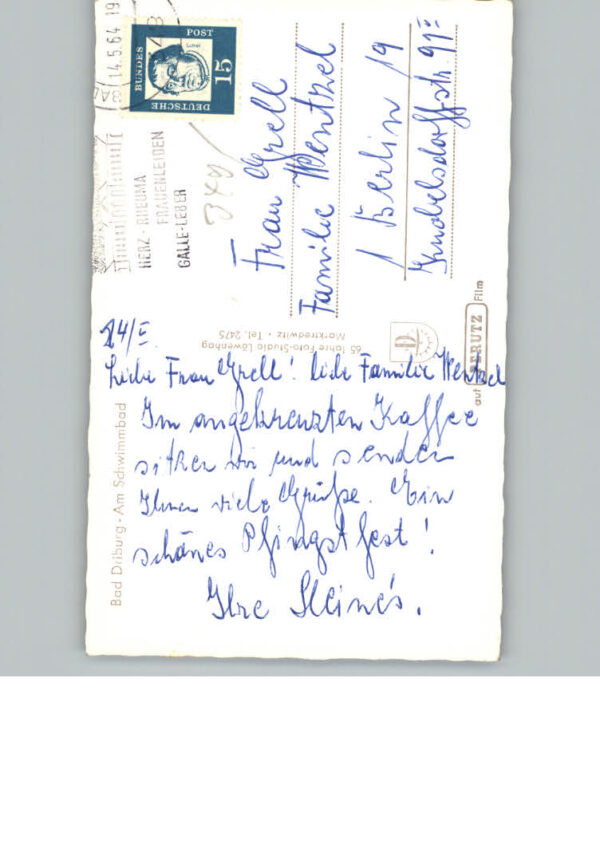 14.5.64-19
DEUTSCHE
BUNDES
POST
Luther
15
HERZ-RHEUMA
FRAUENLEIDEN
GALLE-LEBER
Frau Grell
Familie Wentzel
1 Berlin 19
Knobelsdorffstr. 91II
65 Jahre Foto-Studio Löwenhag
Marktredwitz · Tel. 2475
D
auf PERUTZ Film
Bad Driburg - Am Schwimmbad
14/5.
Liebe Frau Grell! liebe Familie Wentzel
Im angekreuzten Kaffee
sitzen wir und senden
Ihnen viele Grüße. Ein
schönes Pfingstfest!
Ihre